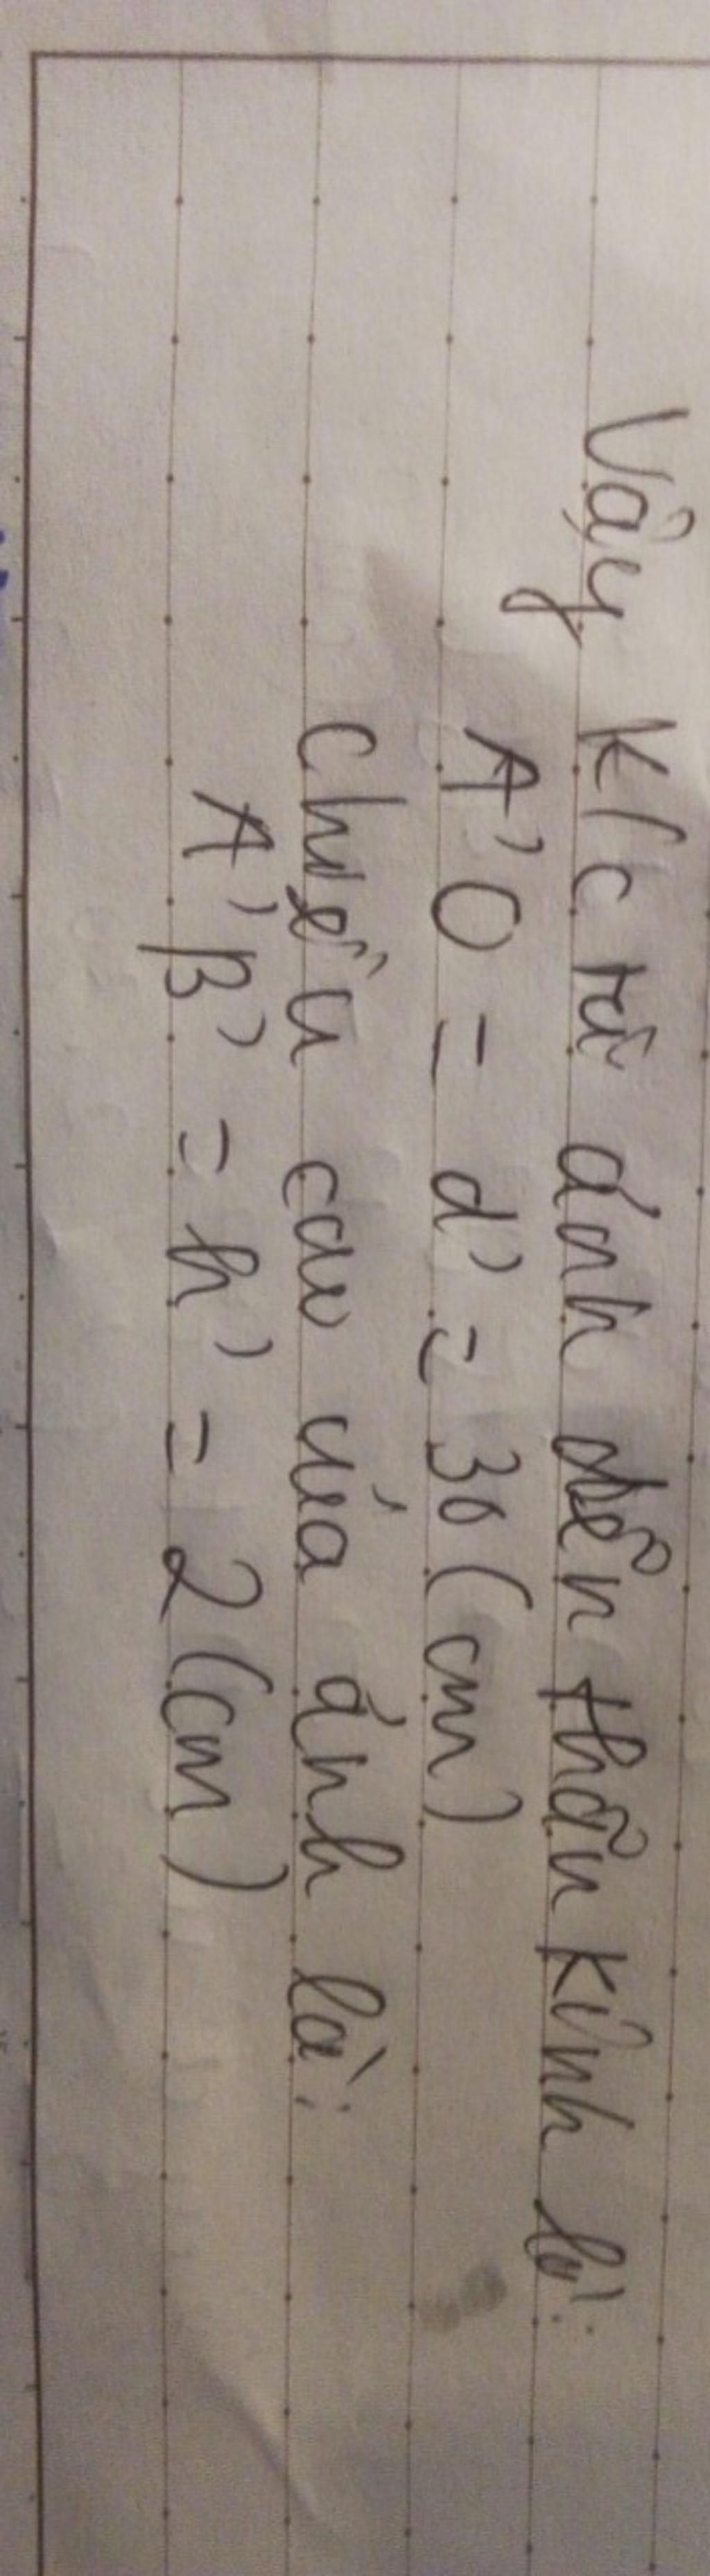 Vậy k/c từ ảnh đến thấu kính là:
A'O = d' = 30 (cm)
Chiều cao của ảnh là:
A'B' = h' = 2 (cm)